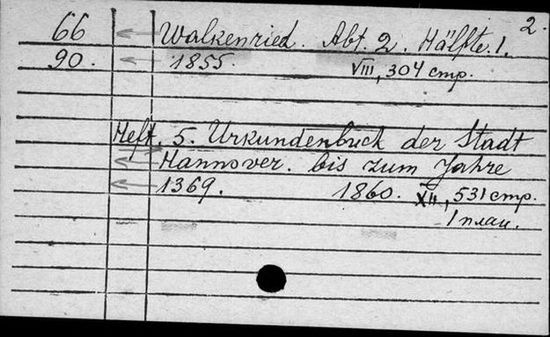 2.
66 Walkenried. Abt. 2. Hälfte. 1.
90. 1855. VIII, 304 стр.
Heft. 5. Urkundenbuch der Stadt
Hannover. bis zum Jahre
1369. 1860. XII, 531 стр.
1 план.